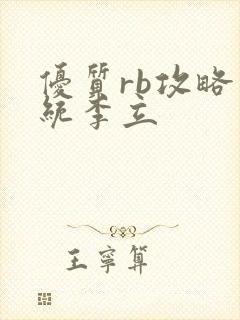 優質rb攻略
統李立
王寧算